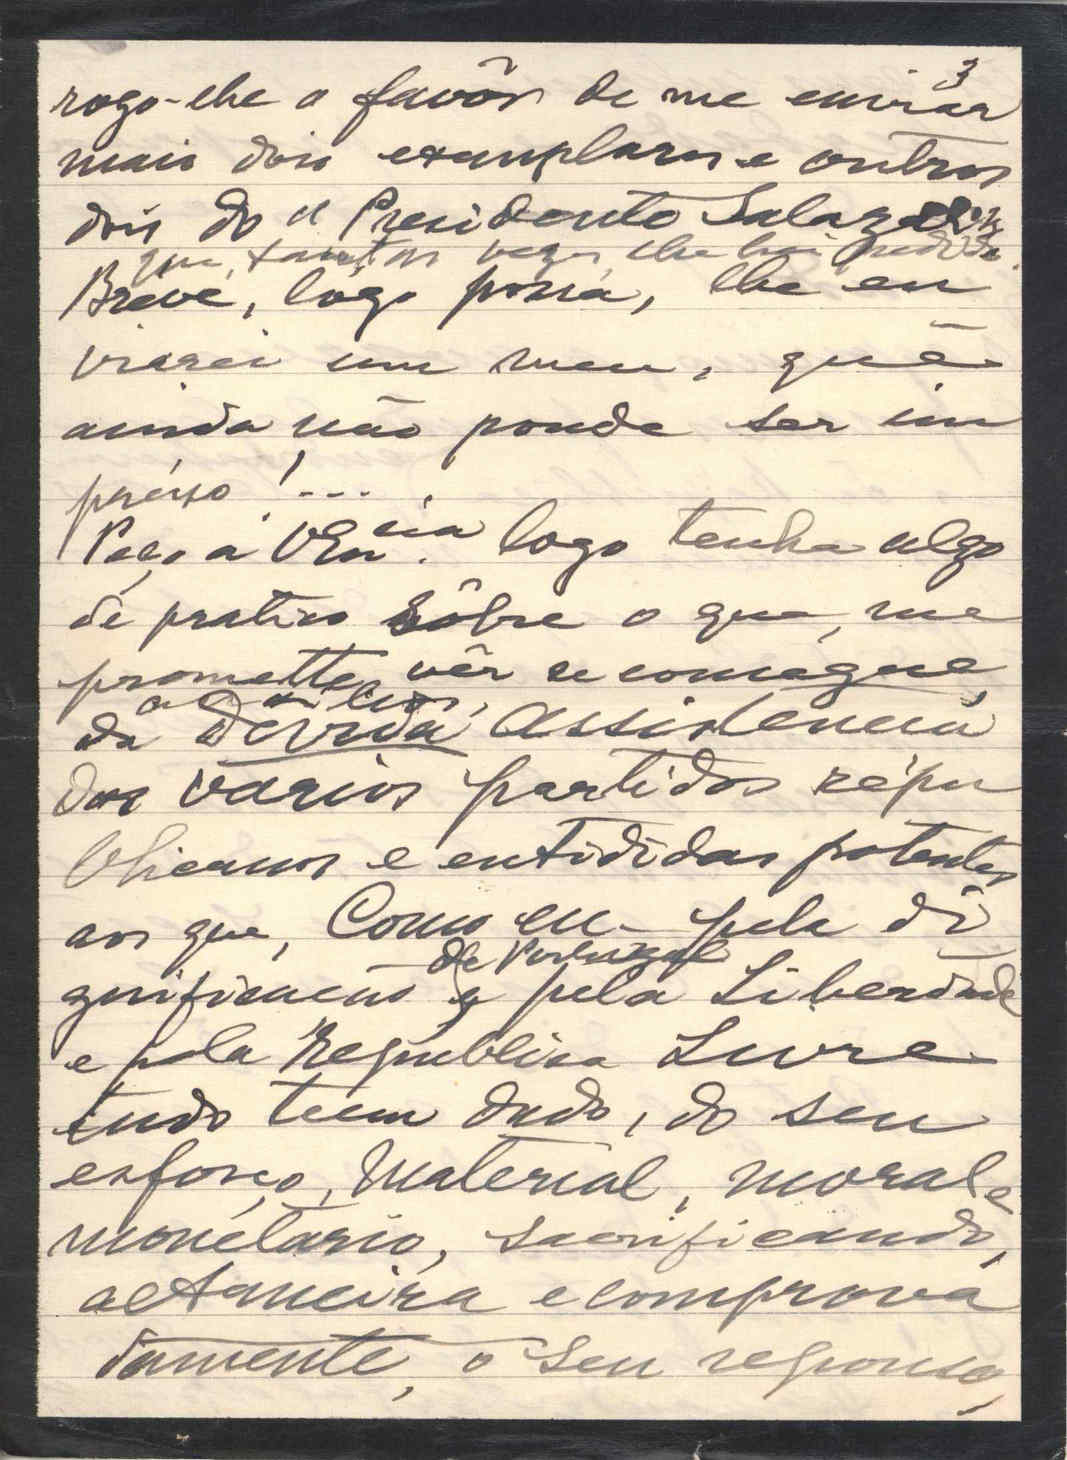 3
rogo-lhe o favôr de me enviar
mais dois exemplares e outros
dois do "Presidente Salazar"
que, tantas vezes, lhe hei pedido.
Breve, lógo possa, lhe en
viarei um meu, que
ainda não poude ser im
presso!...
Peço a V Exª. logo tenha algo
de pratico sôbre o que, me
promette, vêr se consegue
da devida assistencia
dos varios partidos repu
blicanos e entididas potentes
aos que, como eu - pela di
gnificação de Portugal pela Liberdade
e pela República Livre
tudo teem dado, do seu
esforço, material, moral e
monetario, sacrificando,
altaneira e comprova
damente, o seu repouso,